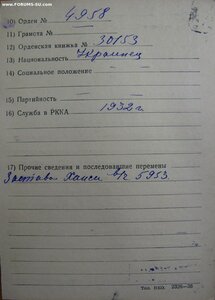 www.FORUMS-SU.com
10) Орден № 4958
11) Грамота №
12) Орденская книжка № 30153
13) Национальность Украинец
14) Социальное положение
15) Партийность
16) Служба в РККА 1932 г.
17) Прочие сведения и последовавшие перемены
Застава Ханси в/ч 5953.
Тип. НКО.